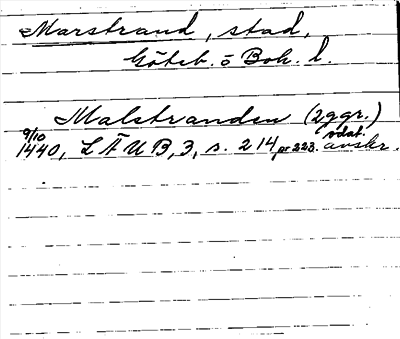 Marstrand, stad,
Göteb. o Boh. l.
Malstranden (2ggr.)
9/10 1440, L Ä U B, 3, s. 214 nr 223. odat. avskr.